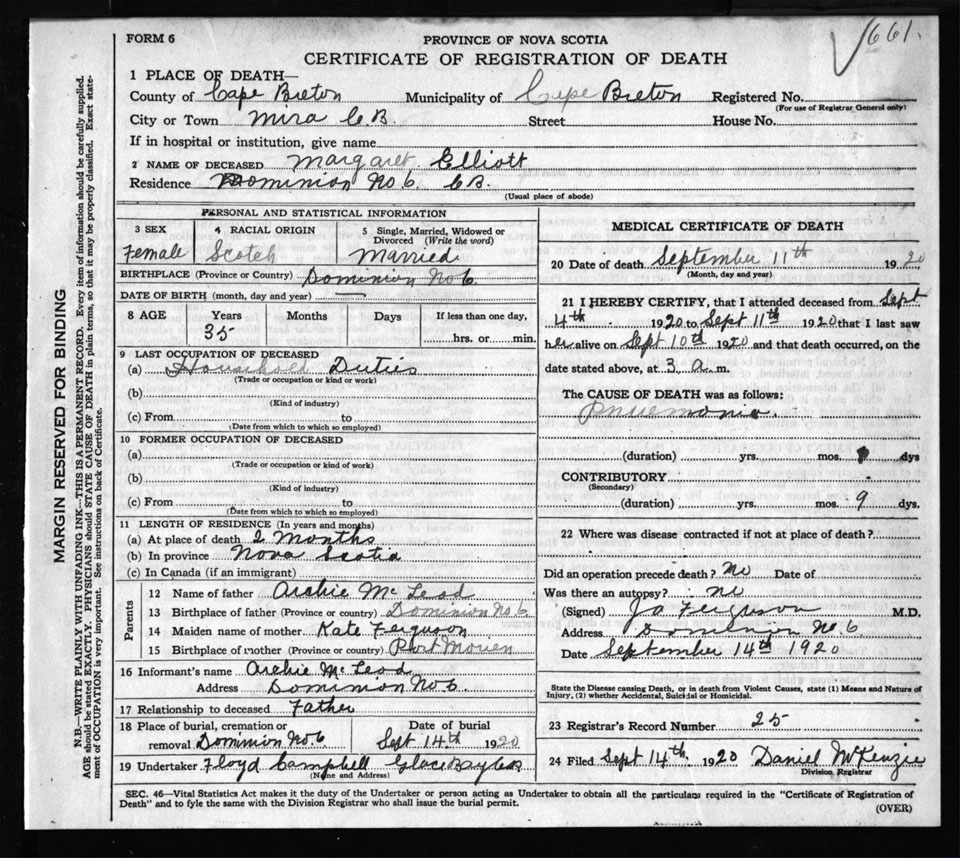 661.
FORM 6
PROVINCE OF NOVA SCOTIA
CERTIFICATE OF REGISTRATION OF DEATH
1 PLACE OF DEATH—
County of Cape Breton Municipality of Cape Breton Registered No.
(For use of Registrar General only)
City or Town Mira C.B. Street House No.
If in hospital or institution, give name
2 NAME OF DECEASED Margaret Elliott
Residence Dominion No 6. CB.
(Usual place of abode)
PERSONAL AND STATISTICAL INFORMATION
3 SEX
Female
4 RACIAL ORIGIN
Scotch
5 Single, Married, Widowed or
Divorced (Write the word)
Married
BIRTHPLACE (Province or Country) Dominion No 6.
DATE OF BIRTH (month, day and year) —
8 AGE Years Months Days If less than one day,
35 hrs. or min.
9 LAST OCCUPATION OF DECEASED
(a) Household Duties
(Trade or occupation or kind or work)
(b)
(Kind of industry)
(c) From to
(Date from which to which so employed)
10 FORMER OCCUPATION OF DECEASED
(a)
(Trade or occupation or kind of work)
(b)
(Kind of industry)
(c) From to
(Date from which to which so employed)
11 LENGTH OF RESIDENCE (In years and months)
(a) At place of death 2 Months
(b) In province Nova Scotia
(c) In Canada (if an immigrant)
Parents
12 Name of father Archie Mc Leod
13 Birthplace of father (Province or country) Dominion No 6.
14 Maiden name of mother Kate Ferguson
15 Birthplace of mother (Province or country) Port Morien
16 Informant's name Archie McLeod
Address Dominion No 6.
17 Relationship to deceased Father
18 Place of burial, cremation or Date of burial
removal Dominion No. 6 Sept 14th 1920
19 Undertaker Floyd Campbell Glace Bay
(Name and Address)
MEDICAL CERTIFICATE OF DEATH
20 Date of death September 11th 1920
(Month, day and year)
21 I HEREBY CERTIFY, that I attended deceased from Sept
4th 1920 to Sept 11th 1920 that I last saw
her alive on Sept 10th 1920 and that death occurred, on the
date stated above, at 3 a. m.
The CAUSE OF DEATH was as follows:
Pneumonia
(duration) yrs. mos. dys
CONTRIBUTORY
(Secondary)
(duration) yrs. mos. 9 dys.
22 Where was disease contracted if not at place of death?
Did an operation precede death? No Date of
Was there an autopsy? no
(Signed) Ferguson M.D.
Address Dominion No. 6
Date September 14th 1920
State the Disease causing Death, or in death from Violent Causes, state (1) Means and Nature of
Injury, (2) whether Accidental, Suicidal or Homicidal.
23 Registrar's Record Number 25
24 Filed Sept 14th. 1920 Daniel McKenzie
Division Registrar
SEC. 46—Vital Statistics Act makes it the duty of the Undertaker or person acting as Undertaker to obtain all the particulars required in the "Certificate of Registration of
Death" and to fyle the same with the Division Registrar who shall issue the burial permit.
(OVER)
MARGIN RESERVED FOR BINDING
N.B.—WRITE PLAINLY WITH UNFADING INK—THIS IS A PERMANENT RECORD. Every item of information should be carefully supplied.
AGE should be stated EXACTLY. PHYSICIANS should STATE CAUSE OF DEATH in plain terms, so that it may be properly classified. Exact state-
ment of OCCUPATION is very important. See instructions on back of Certificate.